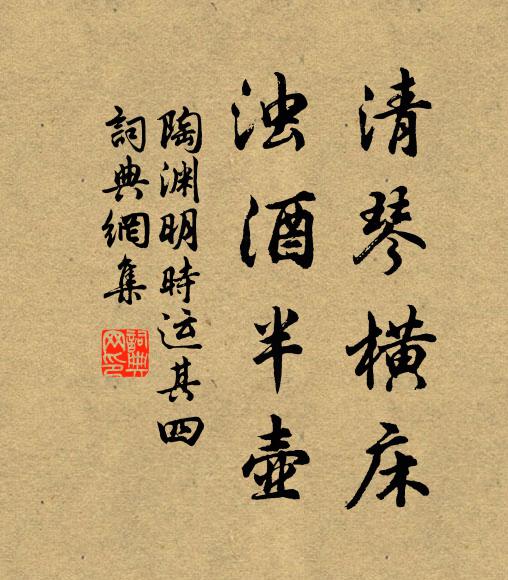 清琴橫床
浊酒半壺
陶渊明時运其四
詞典網集
詞典网印